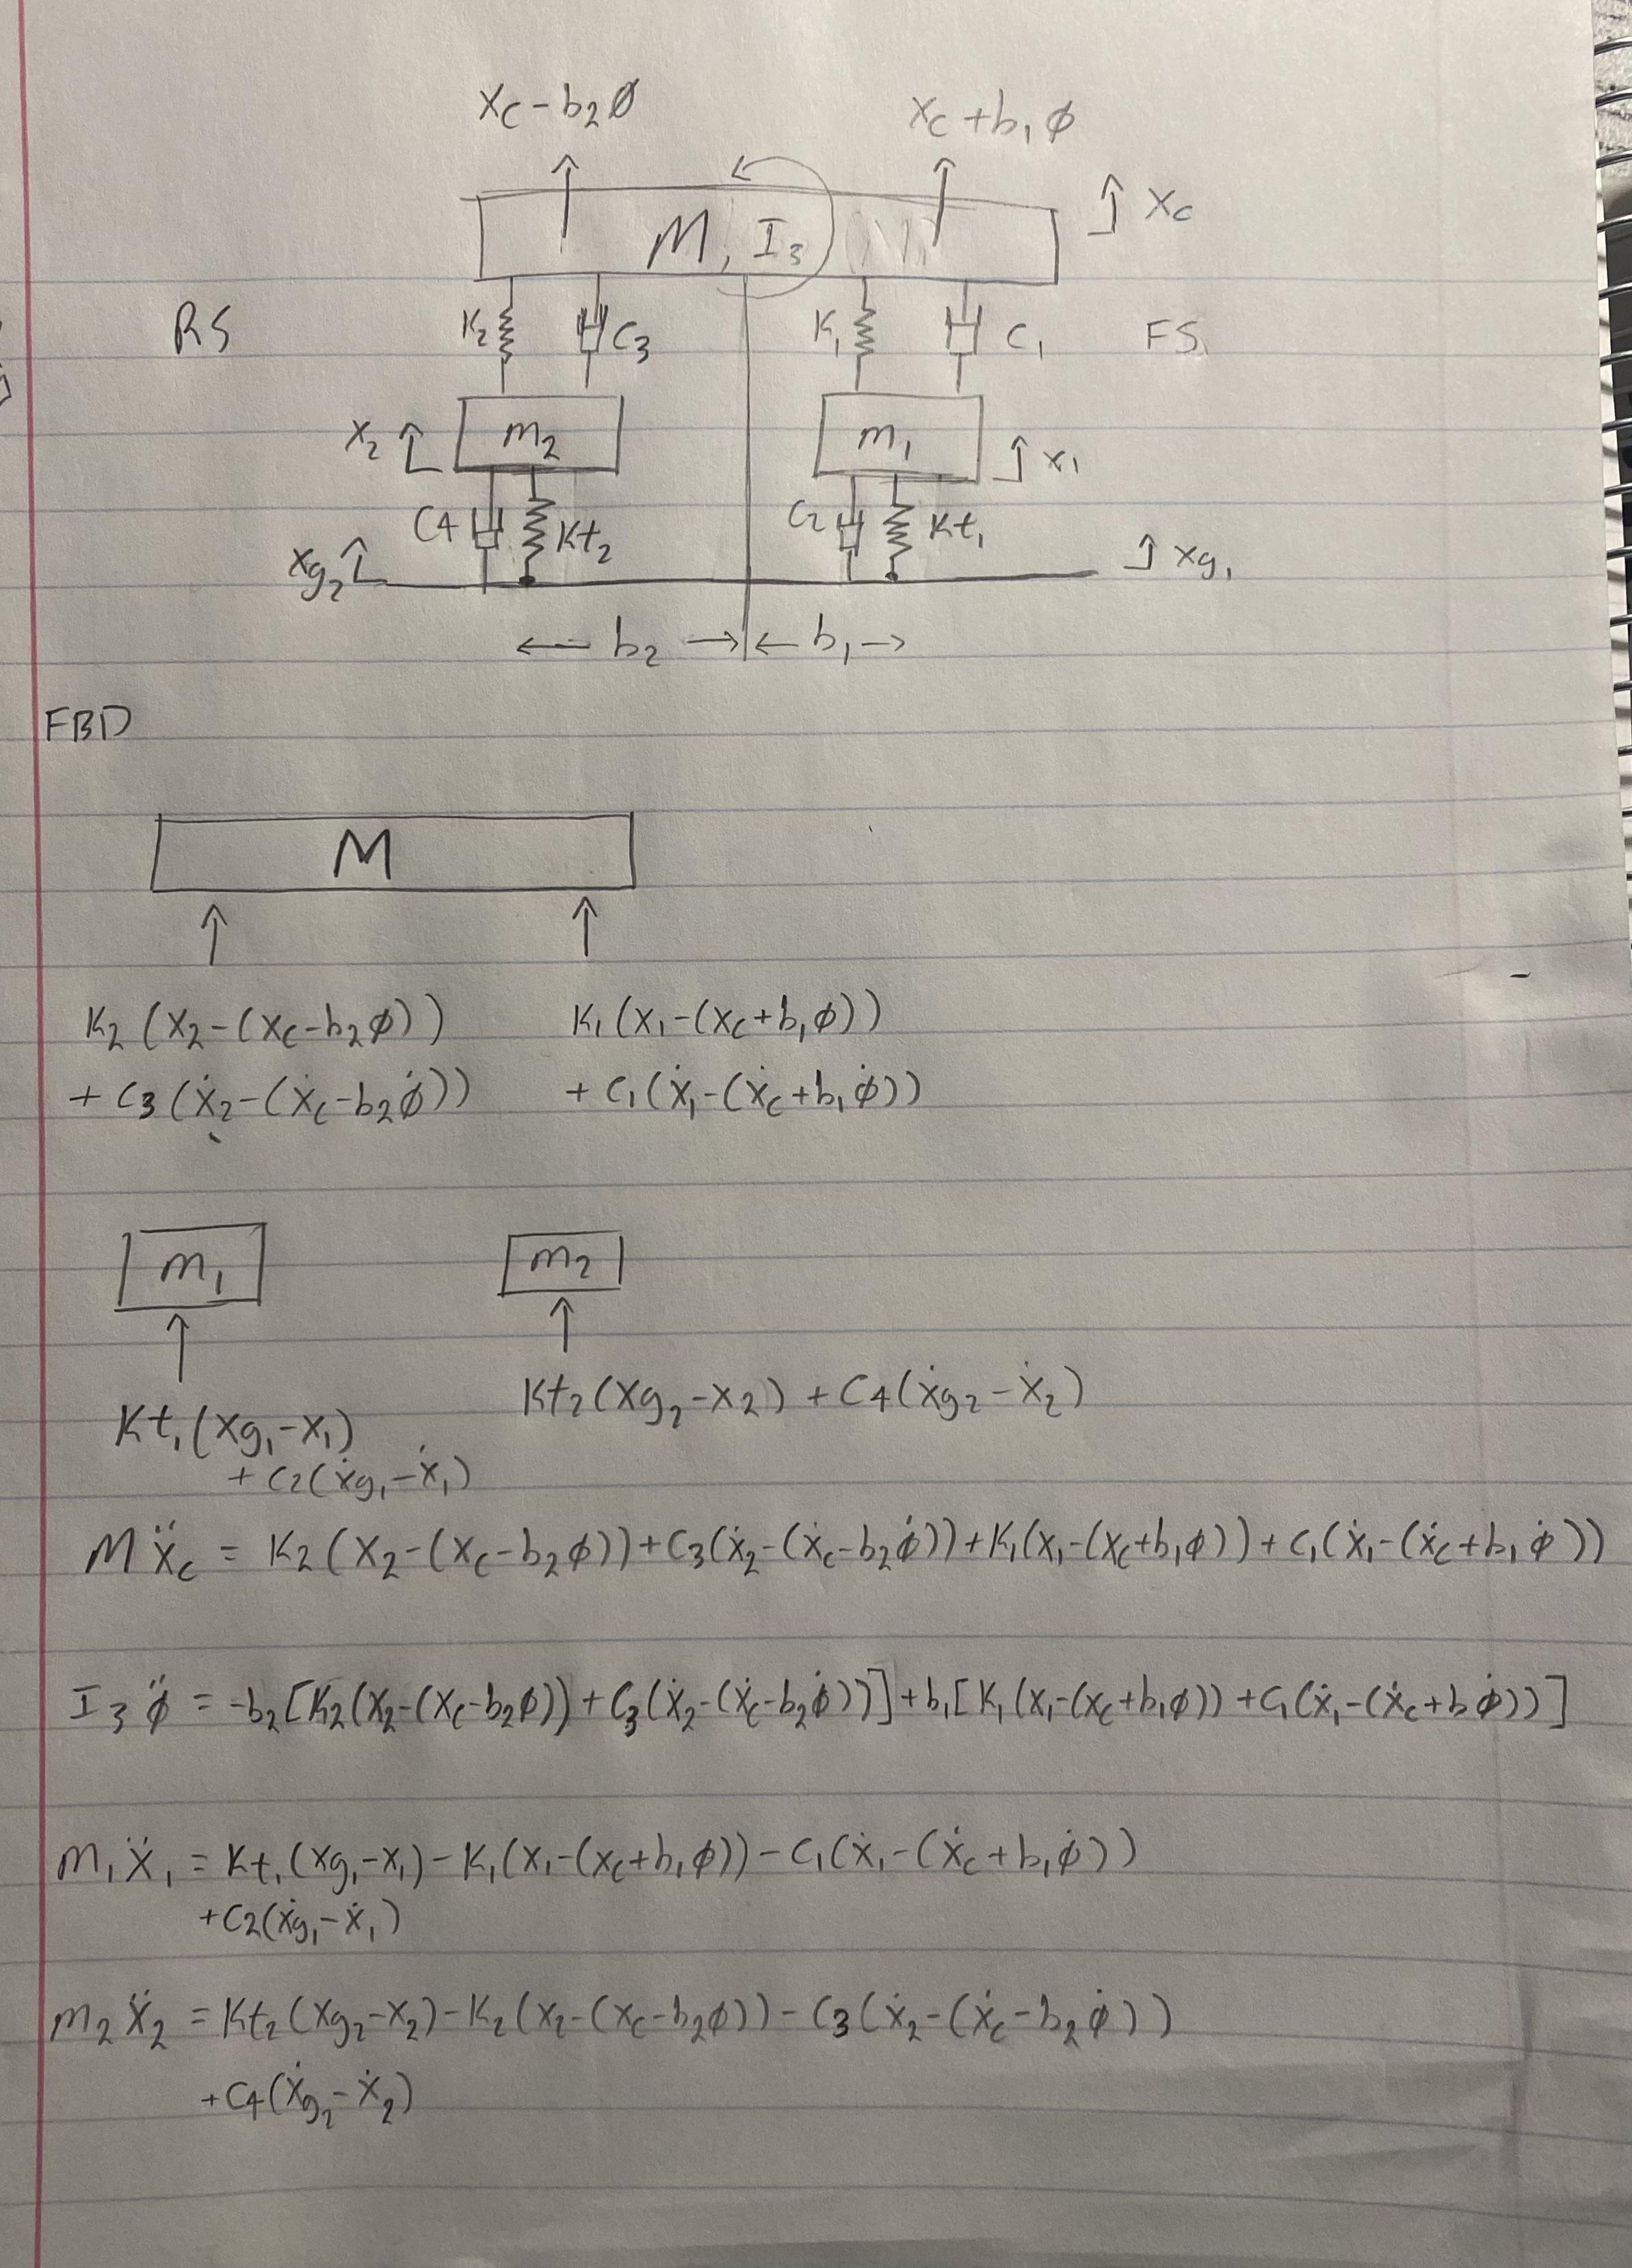 xc - b2φ xc + b1φ
M, I3 ↑ xc
RS K2 C3 K1 C1 FS
x2 m2 m1 x1
C4 Kt2 C2 Kt1
xg2 xg1
← b2 → ← b1 →
FBD
M
K2(x2-(xc-b2φ)) K1(x1-(xc+b1φ))
+ C3(ẋ2-(ẋc-b2φ̇)) + C1(ẋ1-(ẋc+b1φ̇))
m1 m2
Kt2(xg2-x2) + C4(ẋg2-ẋ2)
Kt1(xg1-x1)
+ C2(ẋg1-ẋ1)
Mẍc = K2(x2-(xc-b2φ))+C3(ẋ2-(ẋc-b2φ̇))+K1(x1-(xc+b1φ))+C1(ẋ1-(ẋc+b1φ̇))
I3φ̈ = -b2[K2(x2-(xc-b2φ))+C3(ẋ2-(ẋc-b2φ̇))]+b1[K1(x1-(xc+b1φ))+C1(ẋ1-(ẋc+bφ̇))]
m1ẍ1 = Kt1(xg1-x1)-K1(x1-(xc+b1φ))-C1(ẋ1-(ẋc+b1φ̇))
+C2(ẋg1-ẋ1)
m2ẍ2 = Kt2(xg2-x2)-K2(x2-(xc-b2φ))-C3(ẋ2-(ẋc-b2φ̇))
+C4(ẋg2-ẋ2)